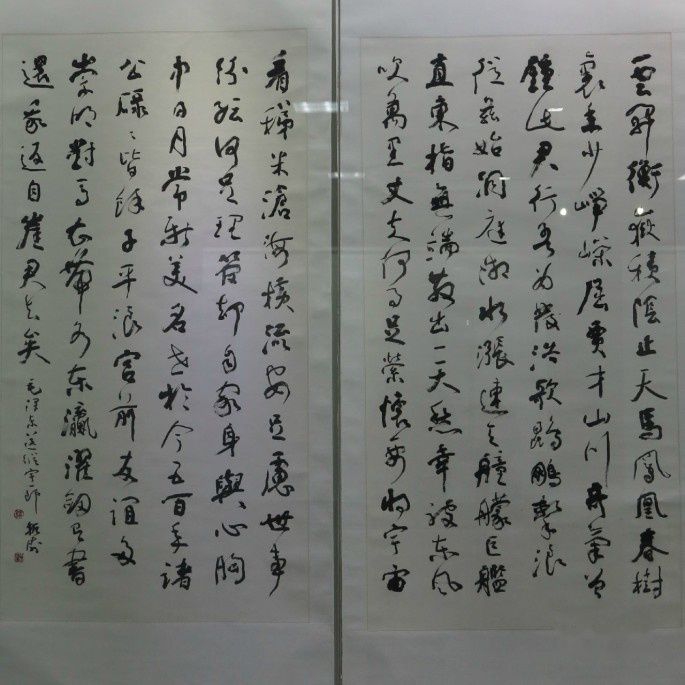 雲開衡嶽積陰止天馬鳳凰春樹
裏年少崢嶸屈賈才山川奇氣曾
鍾此君行吾為發浩歌鵾鵬擊浪
從茲始洞庭湘水漲連天艟艨巨艦
直東指無端散出一天愁幸被東風
吹萬里丈夫何事足縈懷要將宇宙
看稊米滄海橫流安足慮世事
紛紜何足理管卻自家身與心胸
中日月常新美名世於今五百年諸
公碌〻皆餘子平浪宮前友誼多
崇明對馬衣帶水東瀛濯劍有書
還我返自崖君去矣
毛澤東送縱宇一郎